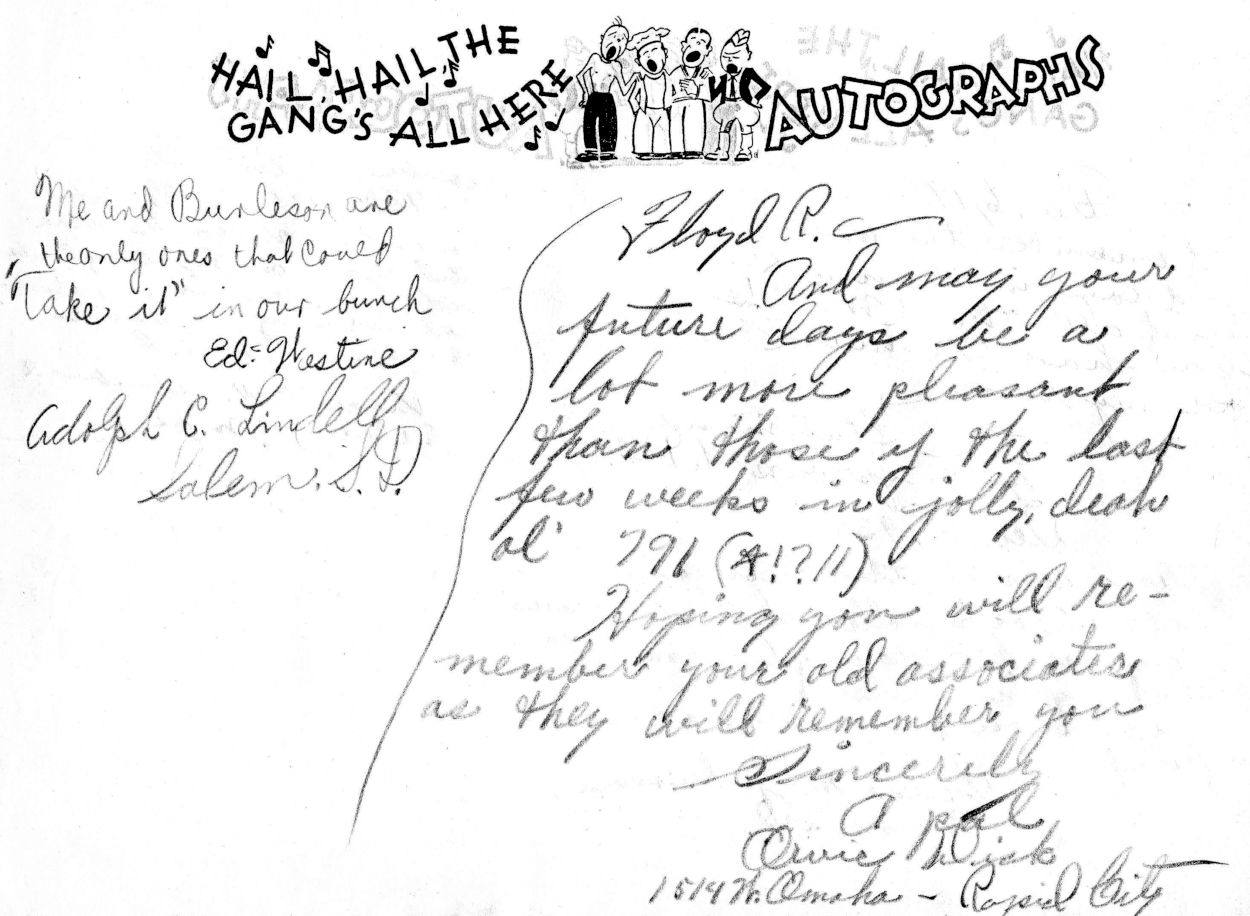 HAIL, HAIL, THE
GANG'S ALL HERE
AUTOGRAPHS
Me and Burleson are
the only ones that could
"Take it" in our bunch
Ed. Westine
Adolph C. Lindell
Salem, S.D.
Floyd R.
And may your
future days be a
lot more pleasant
than those of the last
few weeks in jolly, deah
ol' 791 (*!?!!)
Hoping you will re-
member your old associates
as they will remember you
Sincerely
A pal
Wick
1514 W. Omaha - Rapid City